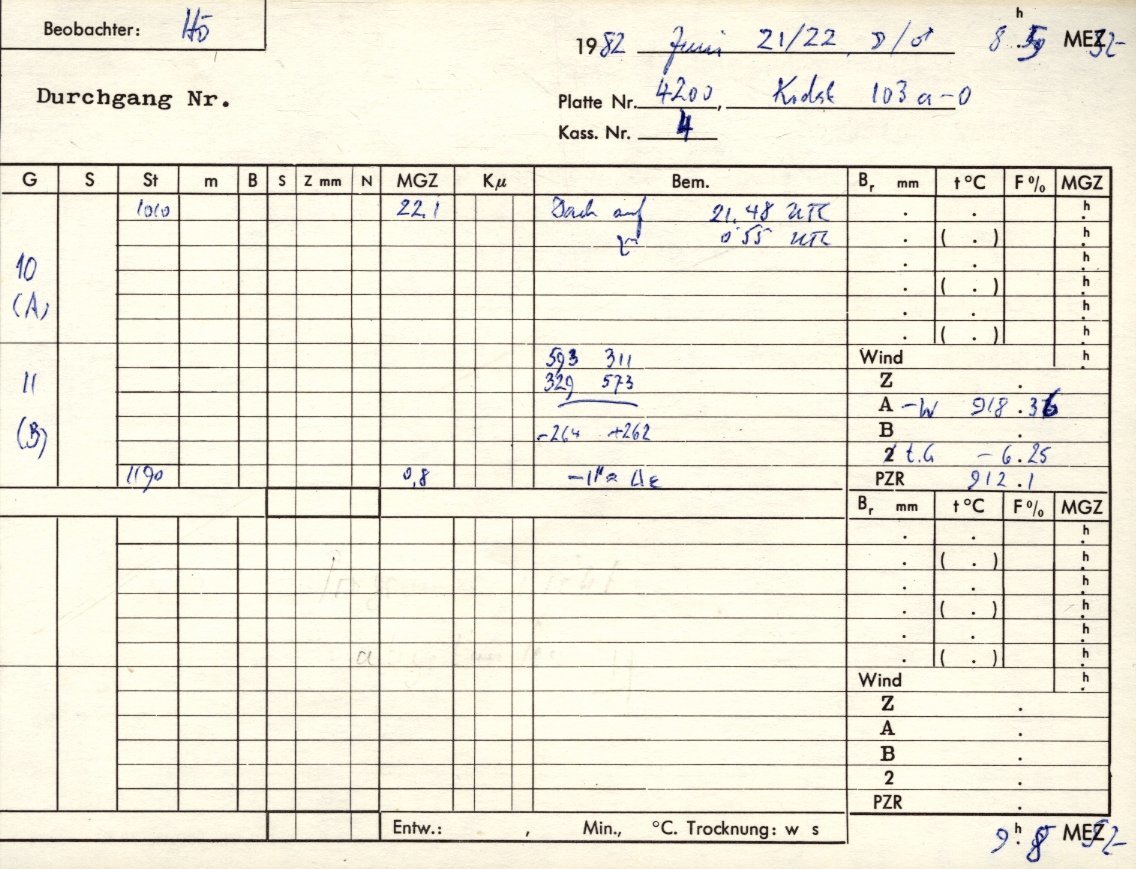 Beobachter: Hö
1982 Juni 21/22 h 8 . MEZ
Durchgang Nr.
Platte Nr. 4200, Kodak 103 a-O
Kass. Nr. 4
G S St m B S Z mm N MGZ Kμ Bem. Br mm t °C F % MGZ
1010 22,1 Dach auf 21.48 UTC . . h.
zu 0 55 UTC . ( . ) h.
10 . . h.
(A) . ( . ) h.
. . h.
. ( . ) h.
593 311 Wind h.
11 329 573 Z .
A -W 918 . 36
(B) -264 +262 B .
2 t.G - 6.25
1190 0,8 PZR 912.1
Br mm t °C F % MGZ
. . h.
. ( . ) h.
. . h.
. ( . ) h.
. . h.
. ( . ) h.
Wind h.
Z .
A .
B .
2 .
PZR .
Entw.: , Min., °C. Trocknung: w s
9 h. 8 MEZ